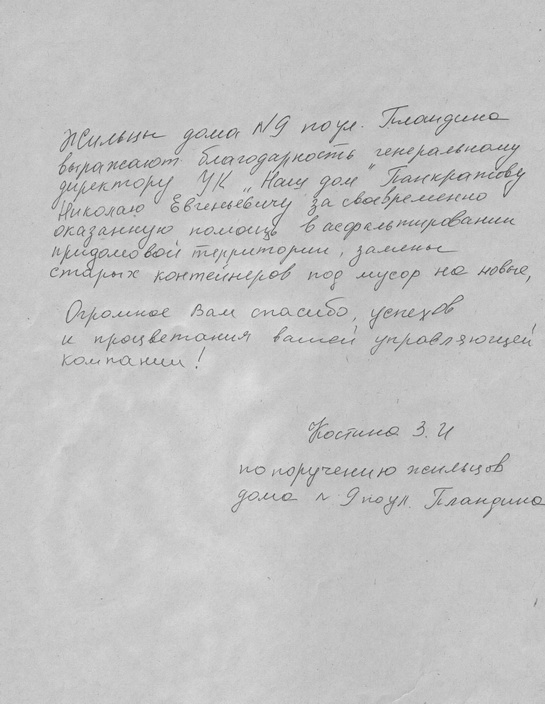 Жильцы дома №9 по ул. Пландина
выражают благодарность генеральному
директору УК „Наш дом" Панкратову
Николаю Евгеньевичу за своевременно
оказанную помощь в асфальтировании
придомовой территории, замены
старых контейнеров под мусор на новые,
Огромное Вам спасибо, успехов
и процветания вашей управляющей
компании!
Костина З.И
по поручению жильцов
дома № 9 по ул. Пландина